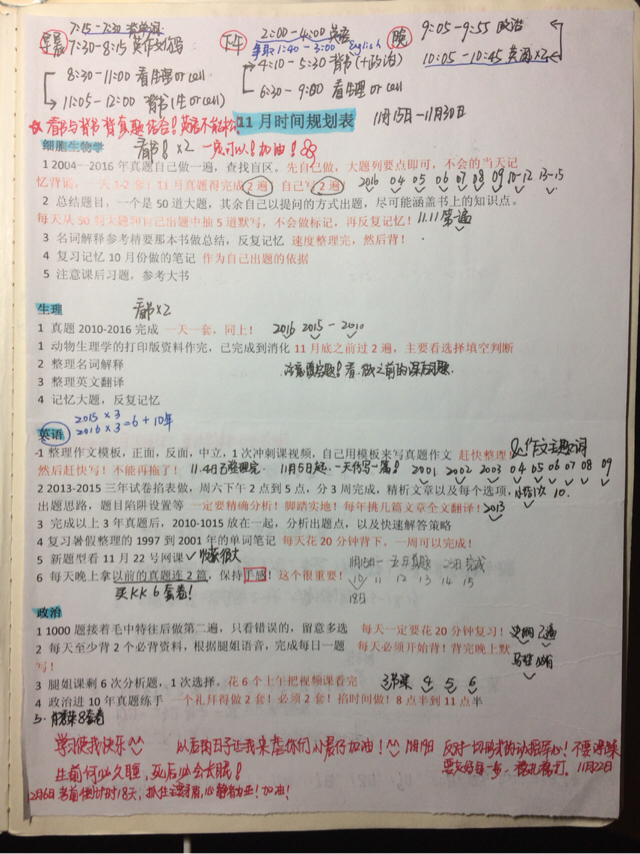 7:15-7:30 背单词
早晨 7:30-8:15 英作文/阅
8:30-11:00 看生理or cell
11:05-12:00 背书(生or cell)
下午 2:00-4:00 英语
争取1:40-3:00 English
4:10-5:30 背书(+政治)
6:30-9:00 看生理or cell
晚 9:05-9:55 政治
10:05-10:45 英语×2
看书与背书 背真题结合!英语不能松!
11月时间规划表 11月15日-11月30日
细胞生物学 看书8×2 一定可以!加油!
1 2004—2016 年真题自己做一遍,查找盲区。先自己做,大题列要点即可,不会的当天记
忆背诵,一天 1-2 套!11 月真题得完成 2 遍 自己写 2 遍 2016 04 05 06 07 08 09 10-12 13-15
2 总结题目,一个是 50 道大题,其余自己以提问的方式出题,尽可能涵盖书上的知识点。
每天从 50 到大题和自己出题中抽 5 道默写,不会做标记,再反复记忆! 11.11 第一遍
3 名词解释参考精要那本书做总结,反复记忆 速度整理完,然后背!
4 复习记忆 10 月份做的笔记 作为自己出题的依据
5 注意课后习题,参考大书
生理 看书×2
1 真题 2010-2016 完成 一天一套,同上! 2016 2015-2010
1 动物生理学的打印版资料作完,已完成到消化 11 月底之前过 2 遍,主要看选择填空判断
2 整理名词解释 注意填空题!看、做之前的课后习题.
3 整理英文翻译
4 记忆大题,反复记忆
英语 2015×3
2016×3 =6+10年
1 整理作文模板,正面,反面,中立,1 次冲刺课视频,自己用模板来写真题作文 赶快整理 &作文主题词
然后赶快写!不能再拖了! 11.4日已整理完 11月5日起,一天仿写一篇! 2001 2002 2003 04 05 06 07 08 09
2 2013-2015 三年试卷掐表做,周六下午 2 点到 5 点,分 3 周完成,精析文章以及每个选项, 10.
出题思路,题目陷阱设置等 一定要精确分析!脚踏实地!每年挑几篇文章全文翻译! 2013
3 完成以上 3 年真题后,2010-1015 放在一起,分析出题点,以及快速解答策略
4 复习暑假整理的 1997 到 2001 年的单词笔记 每天花 20 分钟背下,一周可以完成!
5 新题型看 11 月 22 号网课 收获很大
6 每天晚上拿以前的真题连 2 篇,保持手感!这个很重要! 10 11 12 13 14 15
买KK 6套卷! 18日
政治
1 1000 题接着毛中特往后做第二遍,只看错误的,留意多选 每天一定要花 20 分钟复习! 史纲2遍
2 每天至少背 2 个必背资料,根据腿姐语音,完成每日一题 每天必须开始背!背完晚上默
写!
3 腿姐课剩 6 次分析题,1 次选择。花 6 个上午把视频课看完 3节课 4 5 6
4 政治进 10 年真题练手 一个礼拜得做 2 套!必须 2 套!掐时间做!8 点半到 11 点半
5. 肖秀荣8套卷
学习使我快乐 以后的日子让我来虐你们 小君仔加油! 11月19日
反对一切形式的浮躁学心!不要避课
要好好每一步、稳扎稳打。11月22日
生前何必久睡,死后必会长眠!
12月6日 考前倒计时18天,抓住主要矛盾,心静为主!加油!